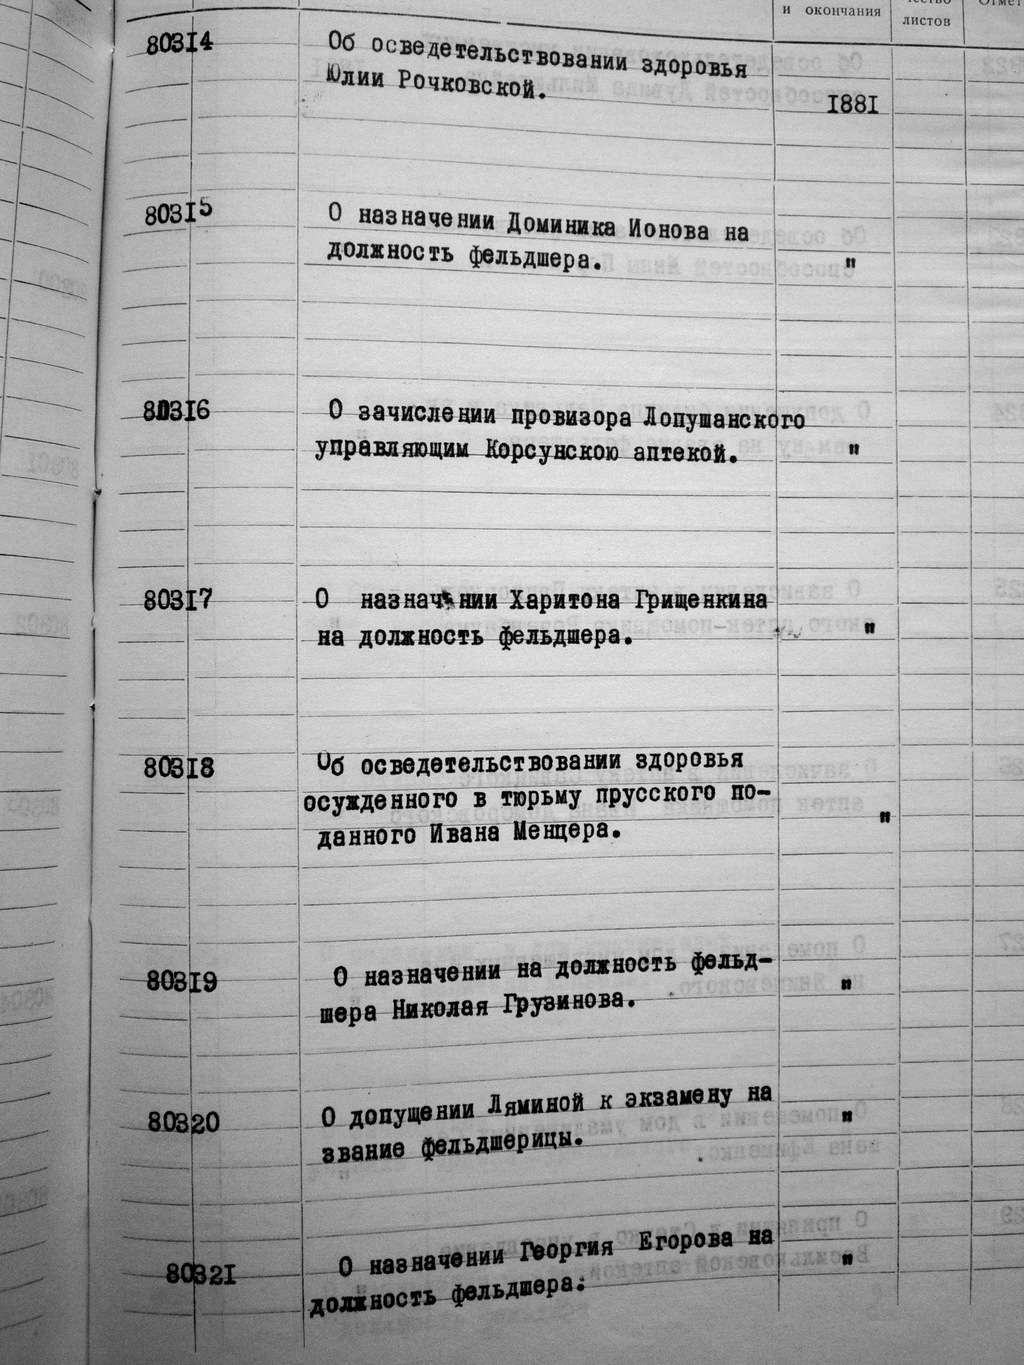 и окончания
листов
80314 Об осведетельствовании здоровья
Юлии Рочковской.
1881
80315 О назначении Доминика Ионова на
должность фельдшера. "
80316 О зачислении провизора Лопушанского
управляющим Корсунскою аптекой. "
80317 О назначении Харитона Грищенкина
на должность фельдшера. "
80318 Об осведетельствовании здоровья
осужденного в тюрьму прусского по-
данного Ивана Менцера. "
80319 О назначении на должность фельд-
шера Николая Грузинова. "
80320 О допущении Ляминой к экзамену на
звание фельдшерицы. "
80321 О назначении Георгия Егорова на
должность фельдшера. "